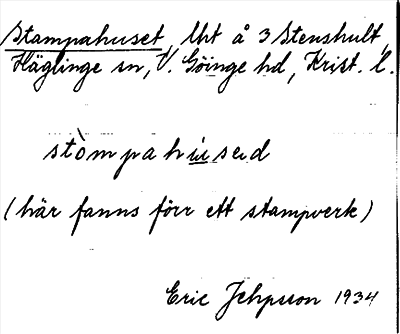 Stampahuset, lht å 3 Stenshult,
Häglinge sn, V. Göinge hd, Krist. l.
stòmpahúsəd
(här fanns förr ett stampverk)
Eric Jehpsson 1934